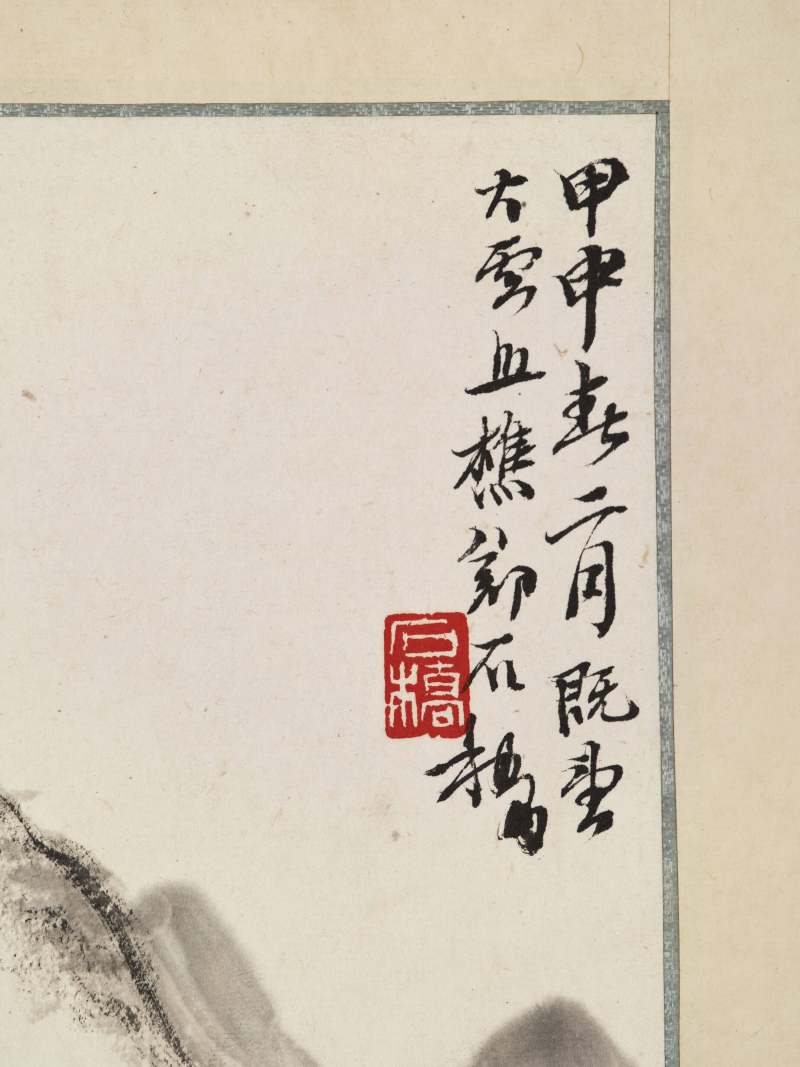 甲申春二月既望
大雲樵鄭石橋
石橋